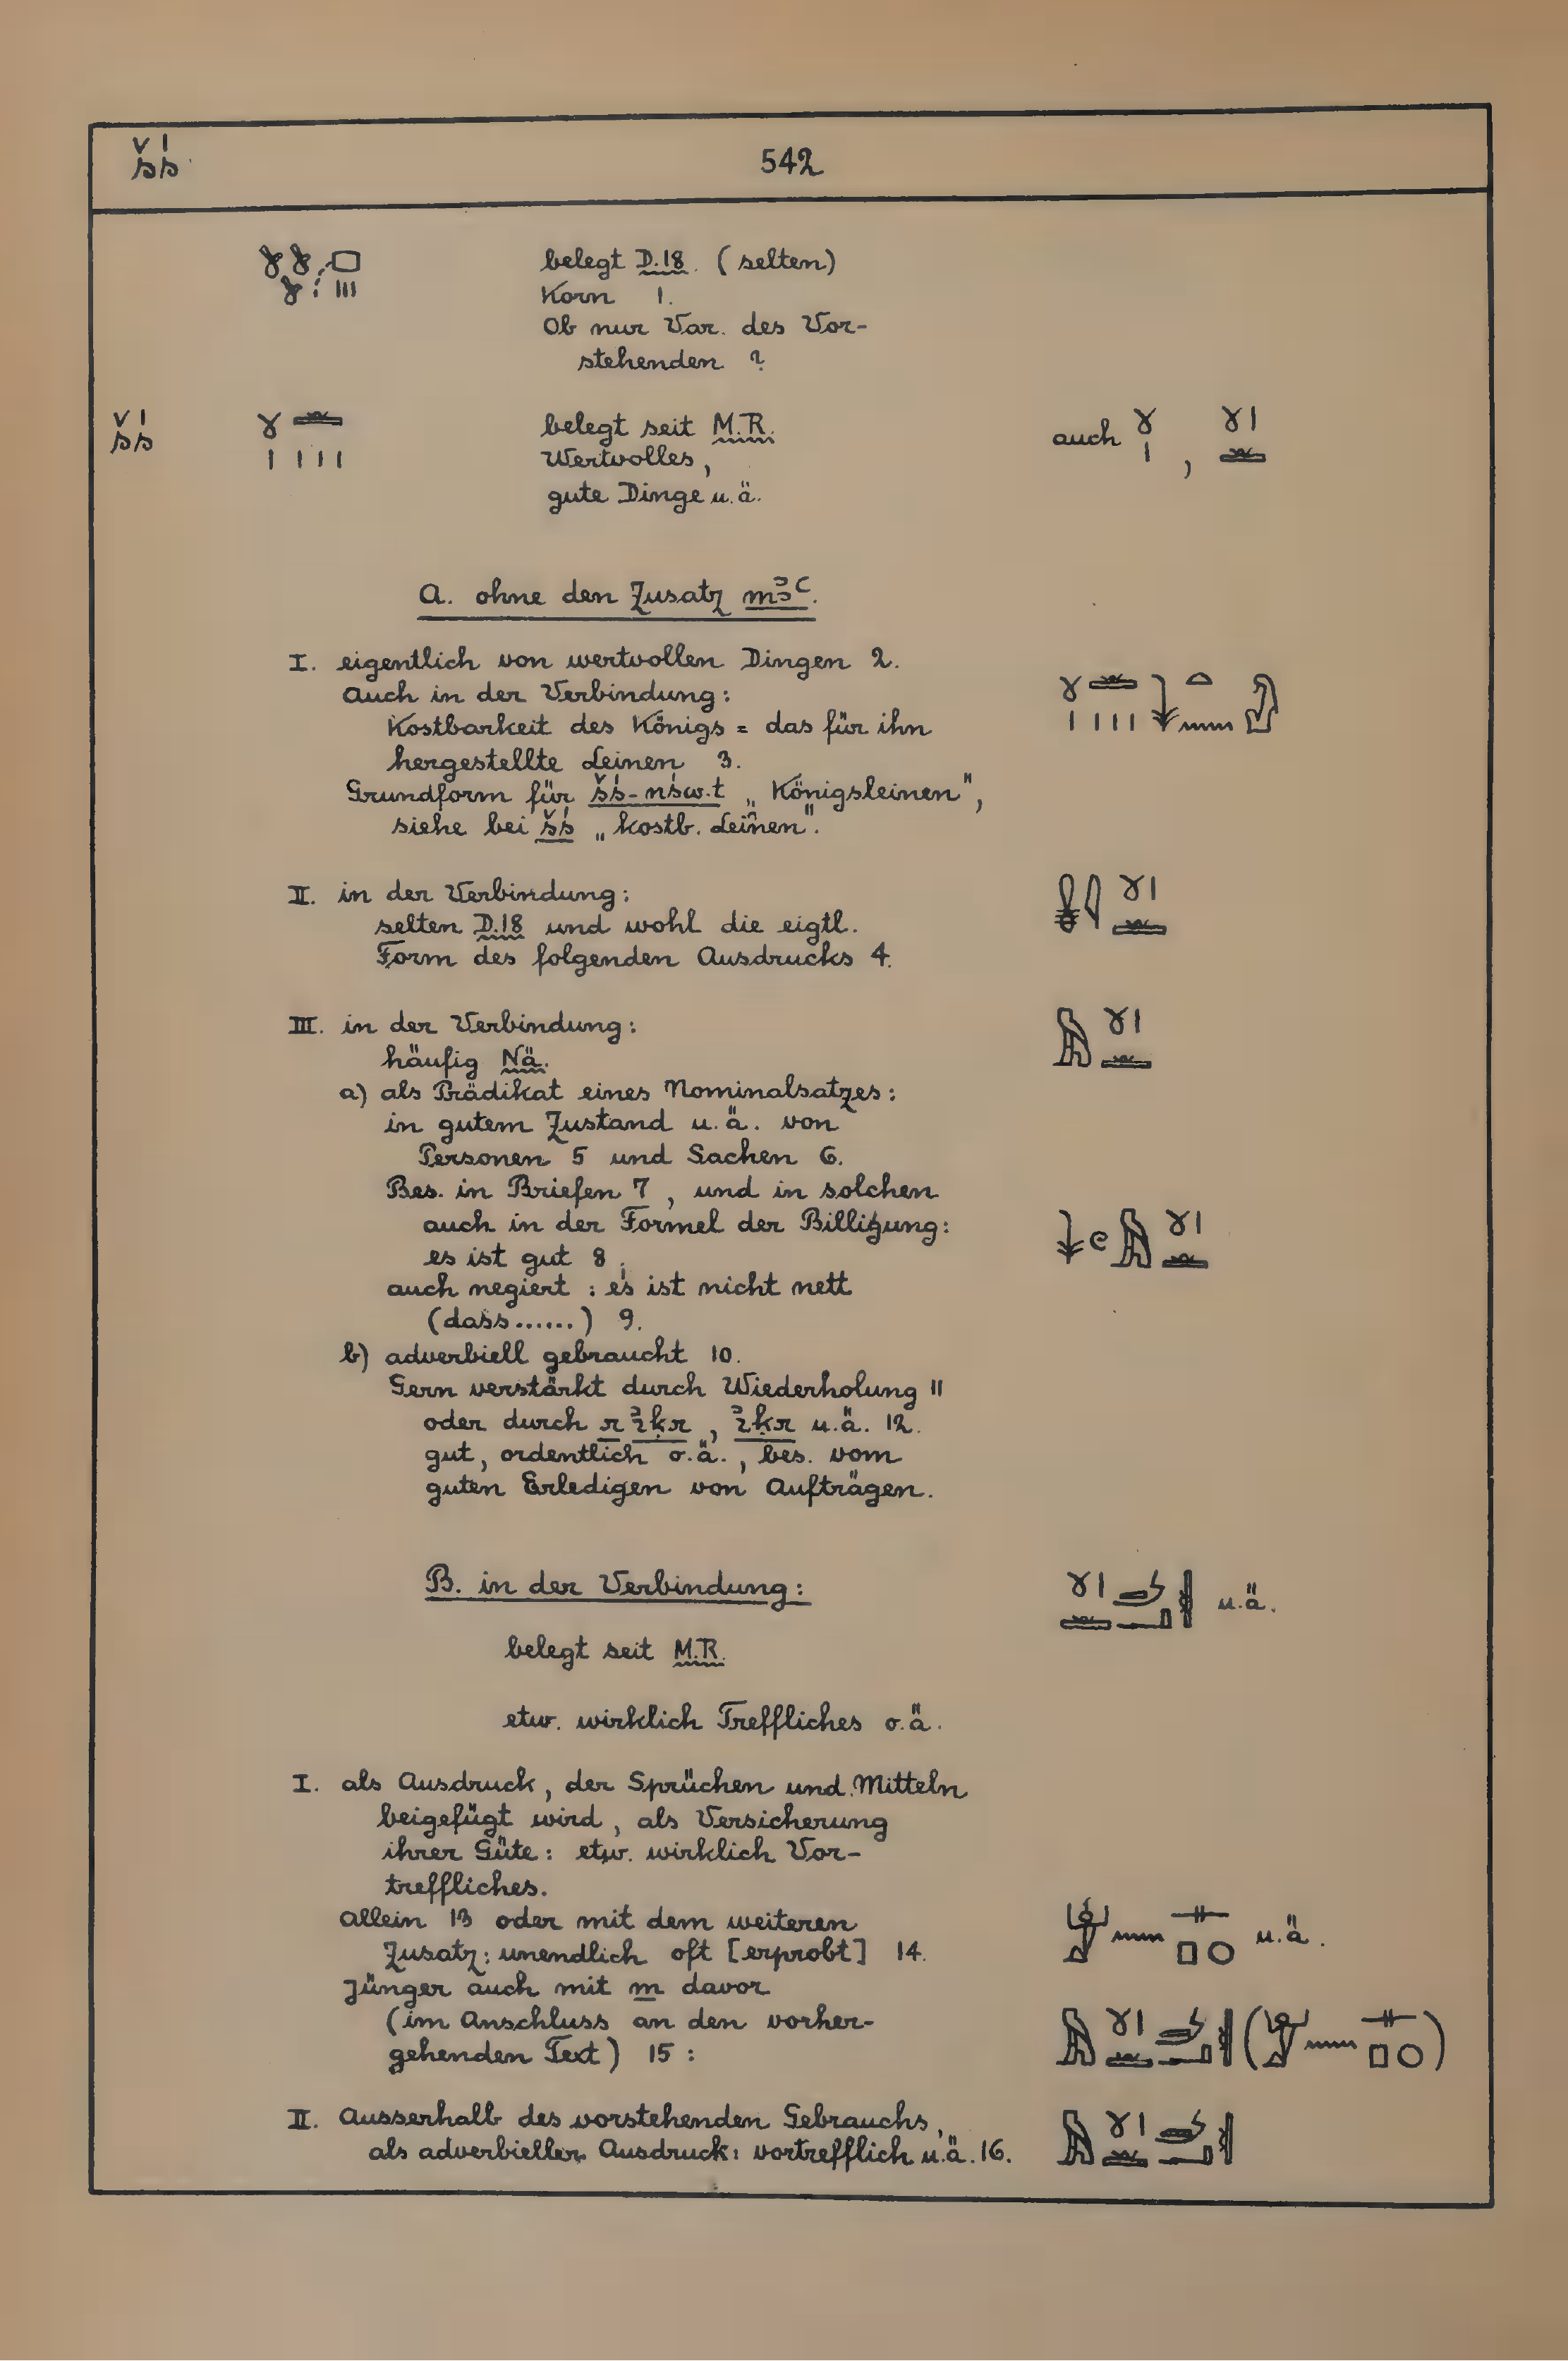 šś
542
belegt D.18. (selten)
Korn 1.
Ob nur Var. des Vor-
stehenden ?
šś
belegt seit M.R.
auch
,
Wertvolles,
gute Dinge u.ä.
A. ohne den Zusatz mꜣꜥ.
I. eigentlich von wertvollen Dingen 2.
Auch in der Verbindung:
Kostbarkeit des Königs = das für ihn
hergestellte Leinen 3.
Grundform für šś-nśw.t „Königsleinen",
siehe bei šś „kostb. Leinen".
II. in der Verbindung:
selten D.18 und wohl die eigtl.
Form des folgenden Ausdrucks 4.
III. in der Verbindung:
häufig Nä.
a) als Prädikat eines Nominalsatzes:
in gutem Zustand u.ä. von
Personen 5 und Sachen 6.
Bes. in Briefen 7, und in solchen
auch in der Formel der Billigung:
es ist gut 8;
auch negiert: es ist nicht nett
(dass......) 9.
b) adverbiell gebraucht 10.
Gern verstärkt durch Wiederholung 11
oder durch r ꜣiḳr, ꜣiḳr u.ä. 12.
gut, ordentlich o.ä., bes. vom
guten Erledigen von Aufträgen.
B. in der Verbindung:
u.ä.
belegt seit M.R.
etw. wirklich Treffliches o.ä.
I. als Ausdruck, der Sprüchen und Mitteln
beigefügt wird, als Versicherung
ihrer Güte: etw. wirklich Vor-
treffliches.
Allein 13 oder mit dem weiteren
Zusatz: unendlich oft [erprobt] 14.
u.ä.
Jünger auch mit m davor
(im Anschluss an den vorher-
gehenden Text) 15:
( )
II. Ausserhalb des vorstehenden Gebrauchs,
als adverbieller Ausdruck: vortrefflich u.ä. 16.